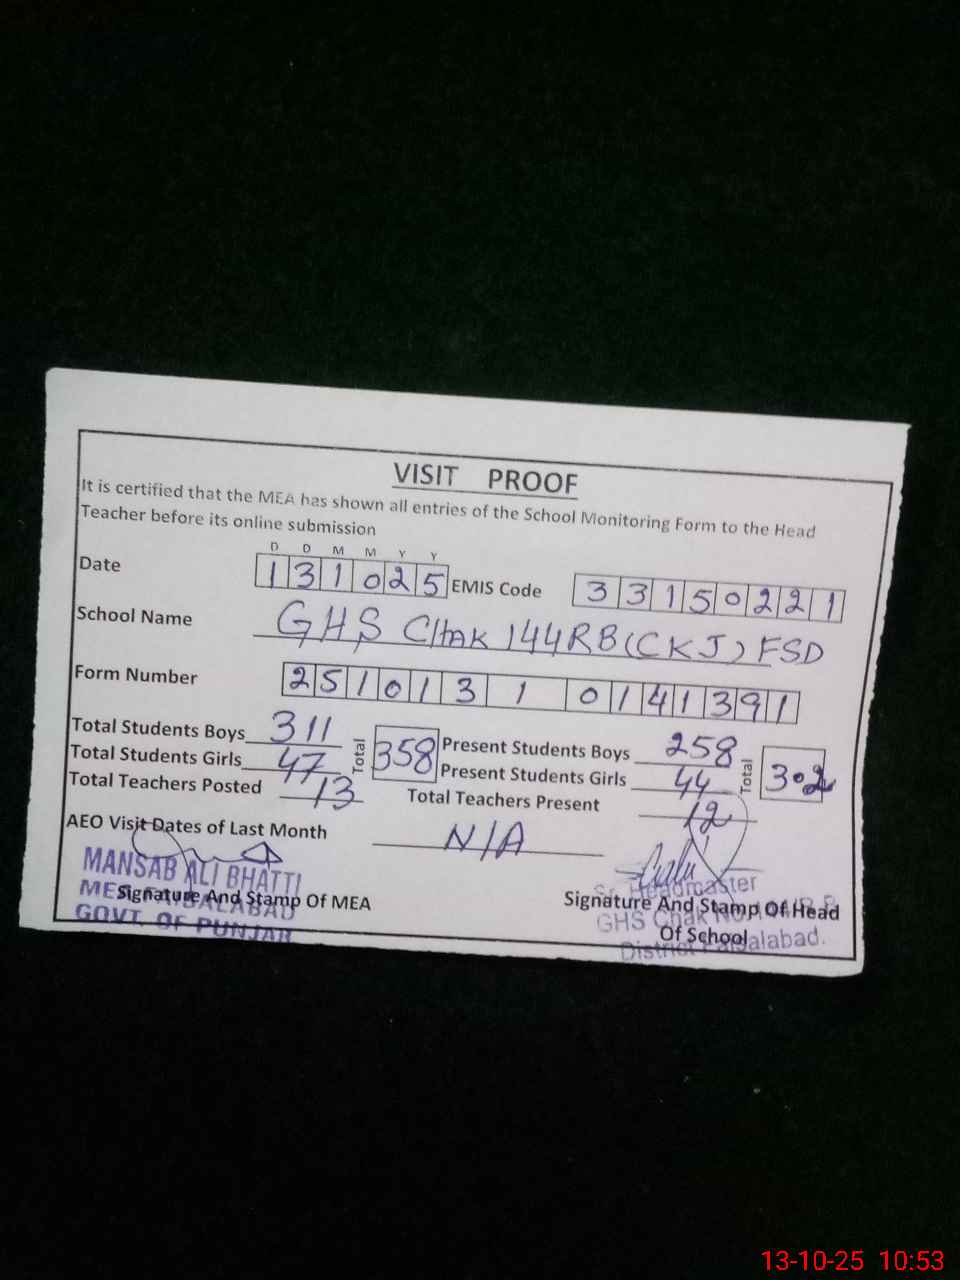 VISIT PROOF
It is certified that the MEA has shown all entries of the School Monitoring Form to the Head
Teacher before its online submission
D D M M Y Y
Date 1 3 1 0 2 5 EMIS Code 3 3 1 5 0 2 2 1
School Name GHS Chak 144RB (CKJ) FSD
Form Number 2 5 1 0 1 3 1 0 1 4 1 3 9 1
Total Students Boys 311 Total 358 Present Students Boys 258 Total 302
Total Students Girls 47 Present Students Girls 44
Total Teachers Posted 13 Total Teachers Present 12
AEO Visit Dates of Last Month N/A
MANSAB ALI BHATTI
MEA FAISALABAD
GOVT. OF PUNJAB
Signature And Stamp Of MEA
Sr. Headmaster
GHS Chak No.
District Faisalabad.
Signature And Stamp Of Head
Of School
13-10-25 10:53